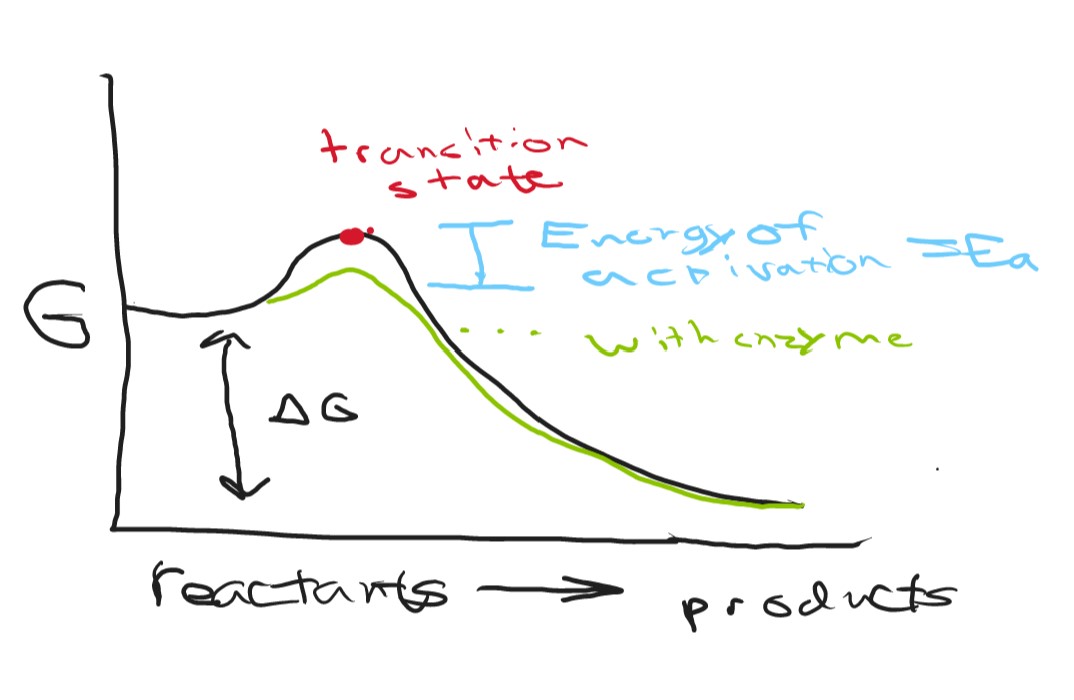 trancition
state
Energy of
acrivation = Ea
G
.... with enzyme
ΔG
reactants → products